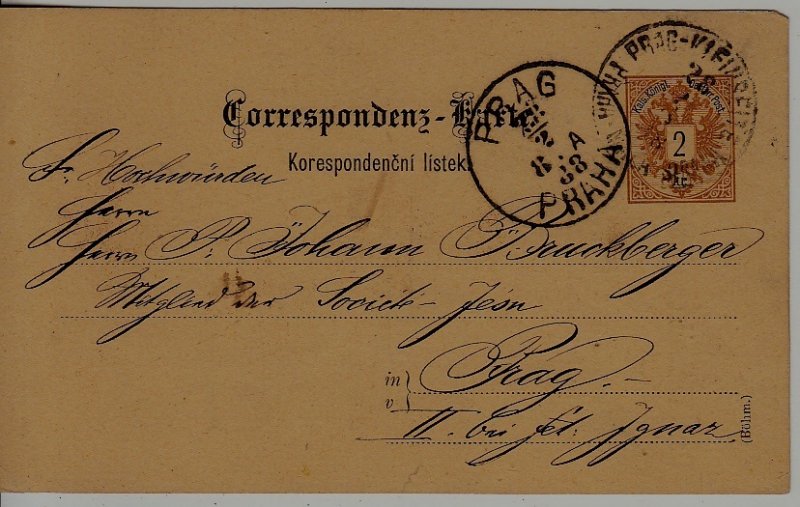 Correspondenz-Karte
Korespondenční lístek.
PRAG
8 A
88
PRAHA
Kais. Königl. Oest. Post.
2
Sr. Hochwürden
Herrn
Herrn P. Johann Bruckberger
Mitglied der Societ. Jesu
in
v
Prag.-
II. bei St. Ignaz
(Böhm.)